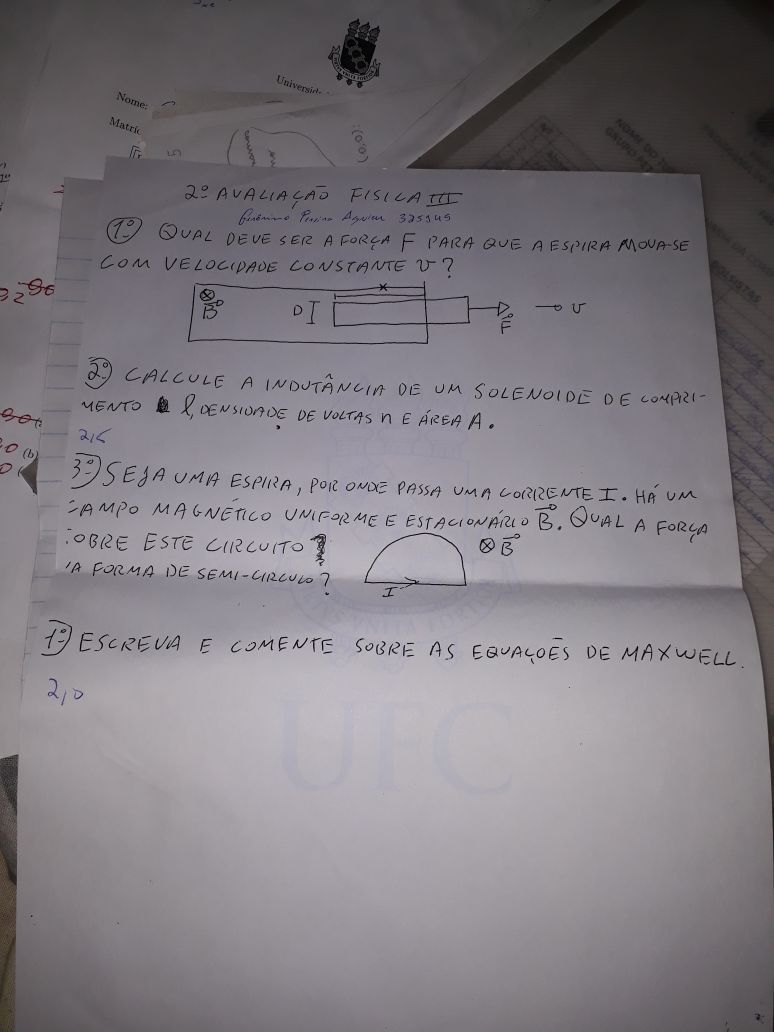 Universid
Nome:
Matríc
2º AVALIAÇÃO FISICA III
325145
1º QUAL DEVE SER A FORÇA F PARA QUE A ESPIRA MOVA-SE
COM VELOCIDADE CONSTANTE v?
x
B D F v
2º CALCULE A INDUTÂNCIA DE UM SOLENOIDE DE COMPRI-
MENTO l, DENSIDADE DE VOLTAS n E ÁREA A.
2,5
3º SEJA UMA ESPIRA, POR ONDE PASSA UMA CORRENTE I. HÁ UM
CAMPO MAGNÉTICO UNIFORME E ESTACIONÁRIO B. QUAL A FORÇA
SOBRE ESTE CIRCUITO
NA FORMA DE SEMI-CIRCULO?
I
B
1º ESCREVA E COMENTE SOBRE AS EQUAÇOẼS DE MAXWELL.
2,0
UFC